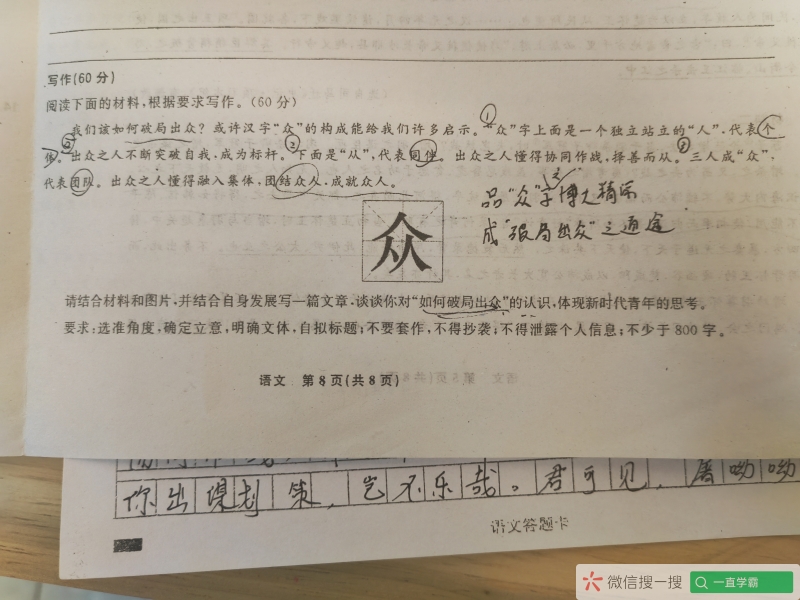 写作(60分)
阅读下面的材料,根据要求写作。(60分)
我们该如何破局出众?或许汉字“众”的构成能给我们许多启示。“众”字上面是一个独立站立的“人”,代表个
体。出众之人不断突破自我,成为标杆。下面是“从”,代表同伴。出众之人懂得协同作战,择善而从。三人成“众”,
代表团队。出众之人懂得融入集体,团结众人,成就众人。
品“众”字博大精深
成“破局出众”之通途
众
请结合材料和图片,并结合自身发展写一篇文章,谈谈你对“如何破局出众”的认识,体现新时代青年的思考。
要求:选准角度,确定立意,明确文体,自拟标题;不要套作,不得抄袭;不得泄露个人信息;不少于800字。
语文 第8页(共8页)
你出谋划策,岂不乐哉。君可见,屠呦呦
语文答题卡
微信搜一搜
一直学霸